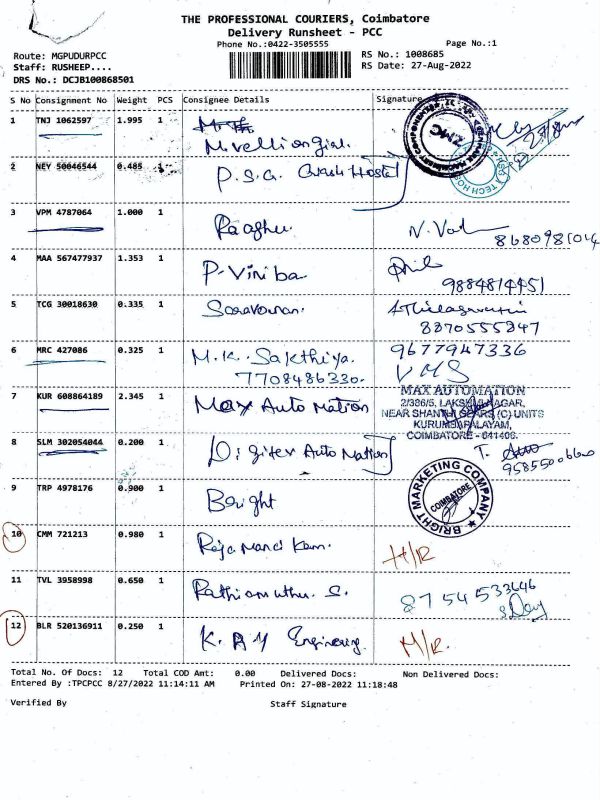 THE PROFESSIONAL COURIERS, Coimbatore
Delivery Runsheet - PCC
Phone No.:0422-3505555
Page No.:1
Route: MGPUDURPCC
RS No.: 1008685
Staff: RUSHEEP....
RS Date: 27-Aug-2022
DRS No.: DCJB100868501
S No Consignment No Weight PCS Consignee Details Signature
1 TNJ 1062597 1.995 1
2 NEY 50046544 0.485 1 P.S.G. Hostel
3 VPM 4787064 1.000 1 Raghu
8680981014
4 MAA 567477937 1.353 1 P. Viniba
9884814451
5 TCG 30018630 0.335 1 Saravanan
8870555847
6 MRC 427086 0.325 1 M.K. Sakthiya. 9677947336
7708486330. VMS
7 KUR 608864189 2.345 1 Max Auto Mation
MAX AUTOMATION
2/386/5, LAKSHMI NAGAR,
NEAR SHANTHI GEARS (C) UNITS
KURUMBAPALAYAM,
COIMBATORE - 641406.
8 SLM 302054044 0.200 1 Digitex Auto Mation
9 TRP 4978176 0.900 1 Bright
BRIGHT MARKETING COMPANY
COIMBATORE
10 CMM 721213 0.980 1
11 TVL 3958998 0.650 1 Rathiamuthu. S.
8754533646
12 BLR 520136911 0.250 1 K.A.Y Enginering.
Total No. Of Docs: 12 Total COD Amt: 0.00 Delivered Docs: Non Delivered Docs:
Entered By :TPCPCC 8/27/2022 11:14:11 AM Printed On: 27-08-2022 11:18:48
Verified By Staff Signature